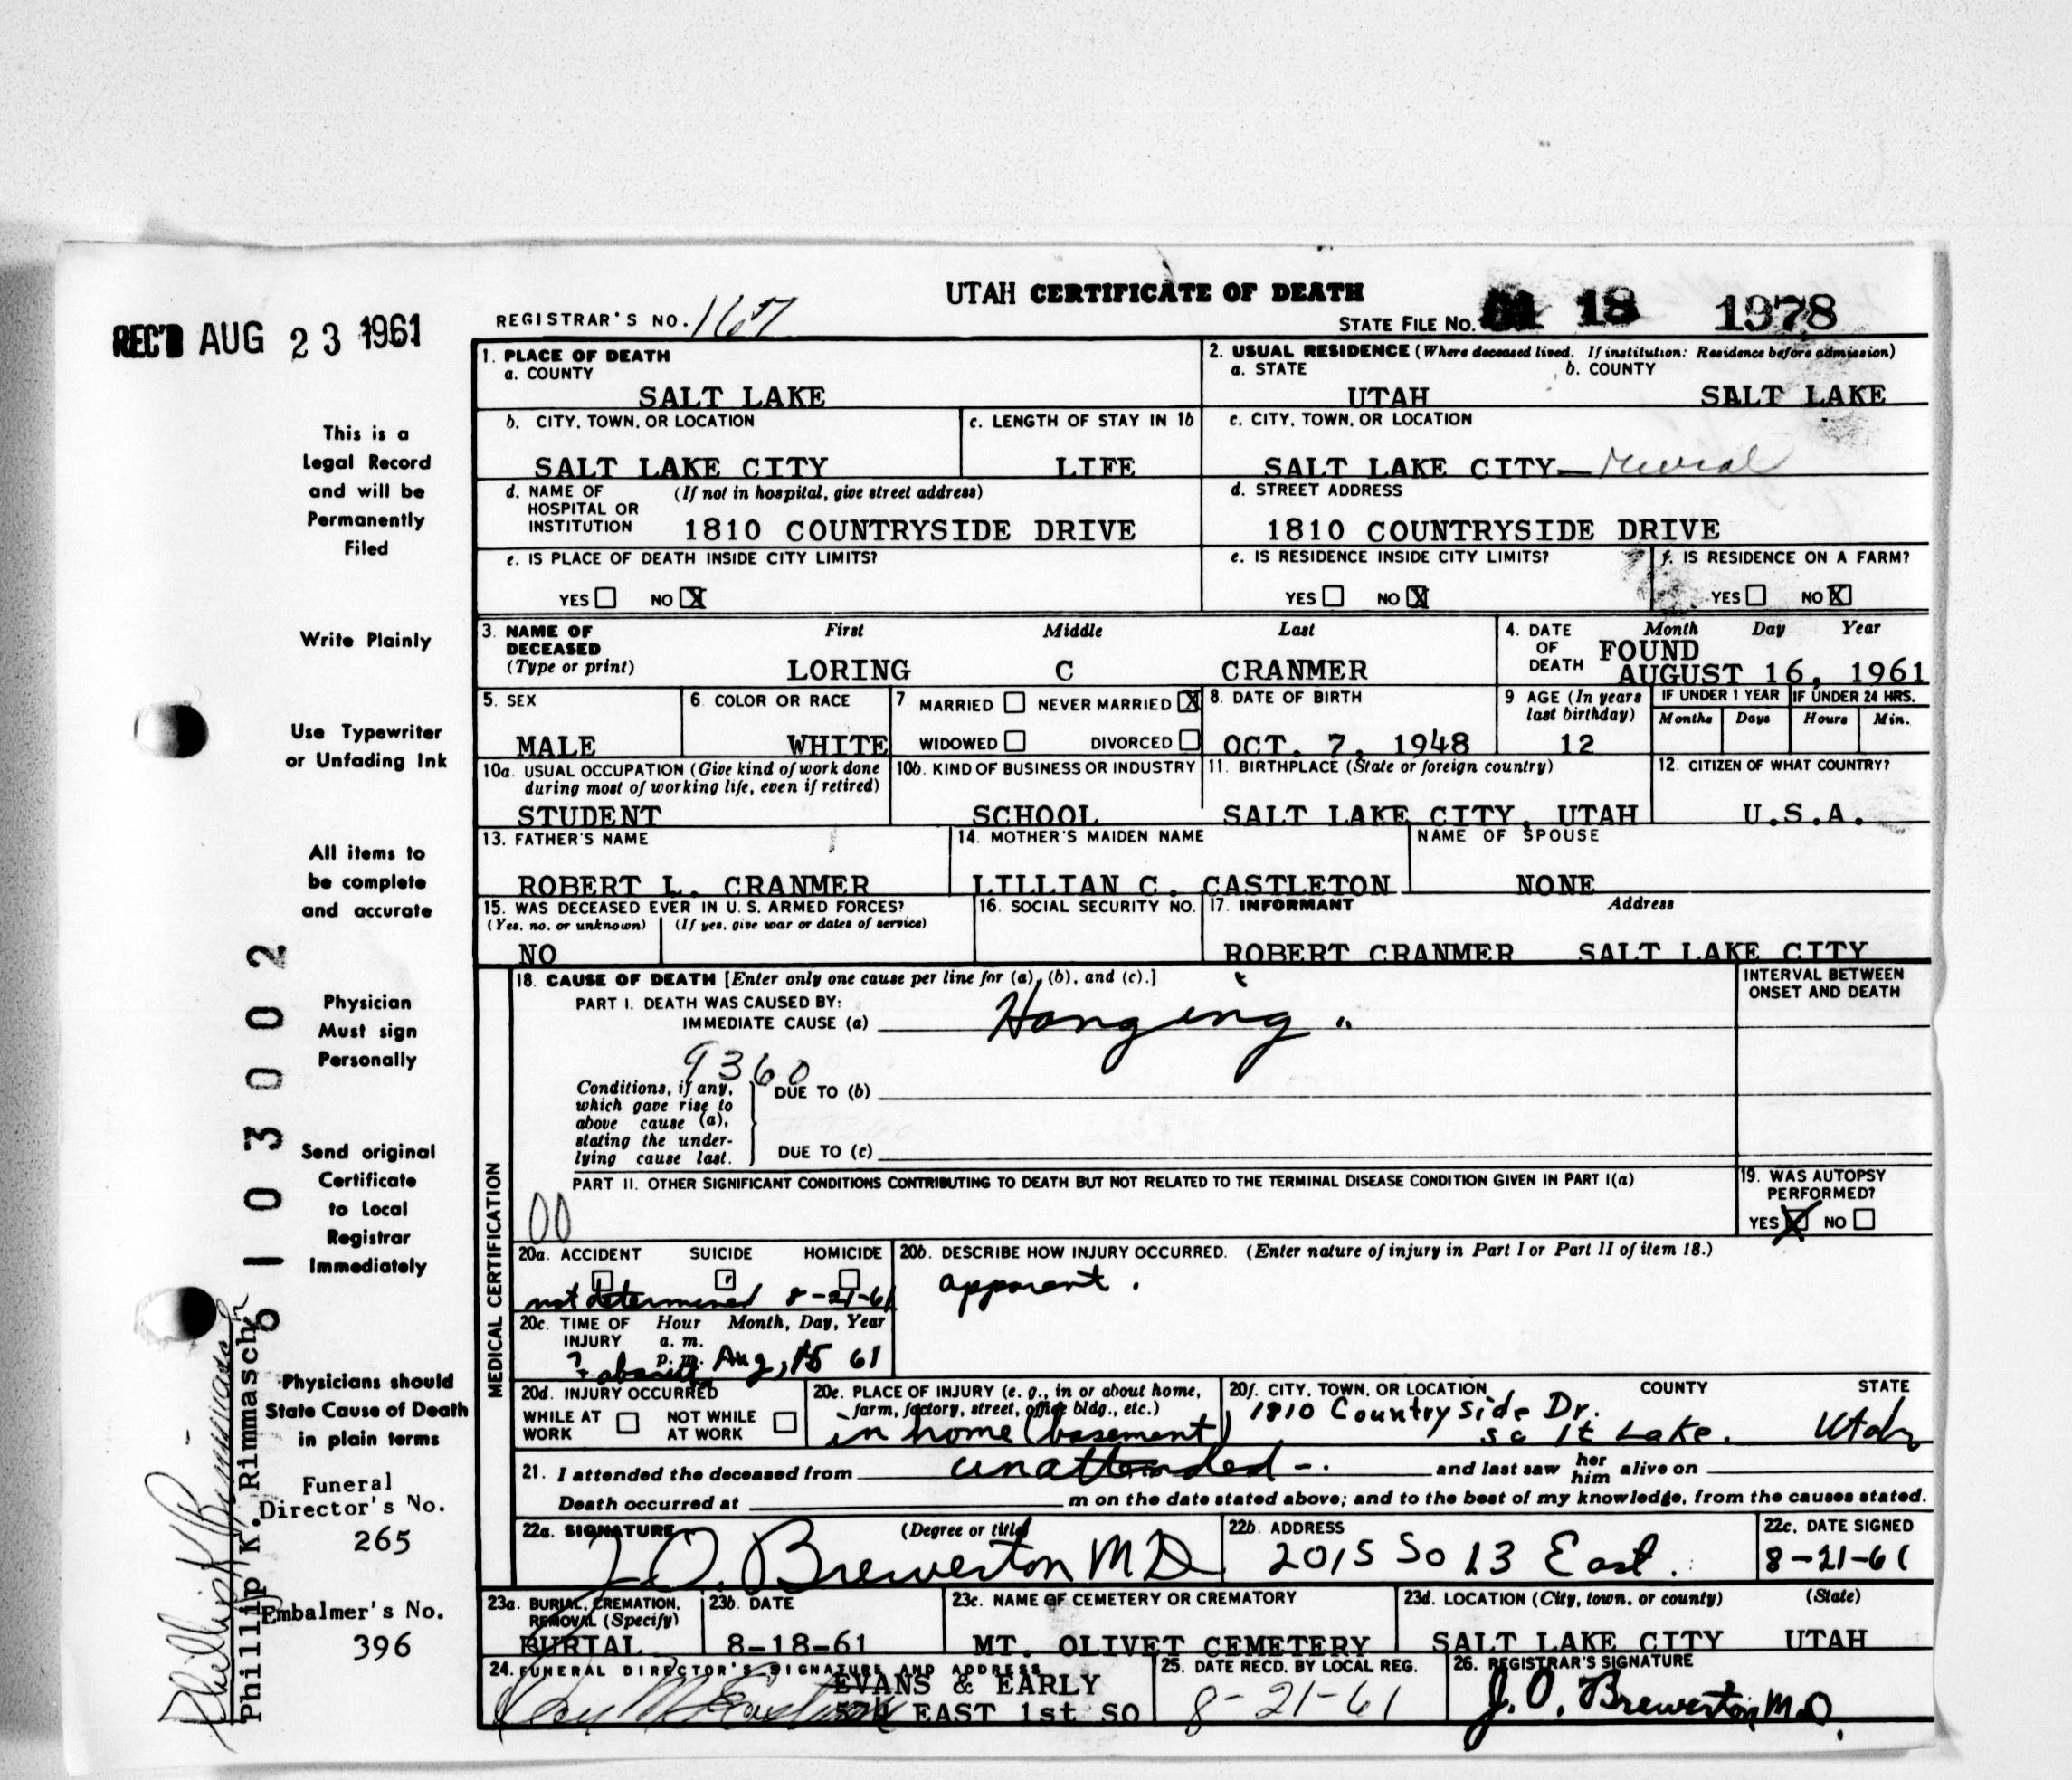 UTAH CERTIFICATE OF DEATH
REC'D AUG 23 1961
REGISTRAR'S NO. 167
STATE FILE NO. 18 1978
1. PLACE OF DEATH
a. COUNTY
SALT LAKE
2. USUAL RESIDENCE (Where deceased lived. If institution: Residence before admission)
a. STATE b. COUNTY
UTAH SALT LAKE
b. CITY, TOWN, OR LOCATION
SALT LAKE CITY
c. LENGTH OF STAY IN 1b
LIFE
c. CITY, TOWN, OR LOCATION
SALT LAKE CITY—rural
d. NAME OF (If not in hospital, give street address)
HOSPITAL OR
INSTITUTION 1810 COUNTRYSIDE DRIVE
d. STREET ADDRESS
1810 COUNTRYSIDE DRIVE
e. IS PLACE OF DEATH INSIDE CITY LIMITS?
YES NO X
e. IS RESIDENCE INSIDE CITY LIMITS?
YES NO X
f. IS RESIDENCE ON A FARM?
YES NO X
3. NAME OF DECEASED (Type or print)
First Middle Last
LORING C CRANMER
4. DATE OF DEATH
Month Day Year
FOUND
AUGUST 16, 1961
5. SEX
MALE
6. COLOR OR RACE
WHITE
7. MARRIED NEVER MARRIED X
WIDOWED DIVORCED
8. DATE OF BIRTH
OCT. 7, 1948
9 AGE (In years last birthday)
12
IF UNDER 1 YEAR
Months Days
IF UNDER 24 HRS.
Hours Min.
10a. USUAL OCCUPATION (Give kind of work done
during most of working life, even if retired)
STUDENT
10b. KIND OF BUSINESS OR INDUSTRY
SCHOOL
11. BIRTHPLACE (State or foreign country)
SALT LAKE CITY, UTAH
12. CITIZEN OF WHAT COUNTRY?
U.S.A.
13. FATHER'S NAME
ROBERT L. CRANMER
14. MOTHER'S MAIDEN NAME
LILLIAN C. CASTLETON
NAME OF SPOUSE
NONE
15. WAS DECEASED EVER IN U. S. ARMED FORCES?
(Yes, no, or unknown) (If yes, give war or dates of service)
NO
16. SOCIAL SECURITY NO.
17. INFORMANT Address
ROBERT CRANMER SALT LAKE CITY
18. CAUSE OF DEATH [Enter only one cause per line for (a), (b), and (c).]
PART I. DEATH WAS CAUSED BY:
IMMEDIATE CAUSE (a) Hanging.
INTERVAL BETWEEN
ONSET AND DEATH
9360
Conditions, if any,
which gave rise to
above cause (a),
stating the under-
lying cause last.
DUE TO (b)
DUE TO (c)
PART II. OTHER SIGNIFICANT CONDITIONS CONTRIBUTING TO DEATH BUT NOT RELATED TO THE TERMINAL DISEASE CONDITION GIVEN IN PART I(a)
00
19. WAS AUTOPSY
PERFORMED?
YES X NO
MEDICAL CERTIFICATION
20a. ACCIDENT SUICIDE HOMICIDE
not determined 8-21-61
20b. DESCRIBE HOW INJURY OCCURRED. (Enter nature of injury in Part I or Part II of item 18.)
apparent.
20c. TIME OF INJURY
Hour Month, Day, Year
a. m.
p. m.
? Aug, 15 61
20d. INJURY OCCURRED
WHILE AT WORK NOT WHILE AT WORK
20e. PLACE OF INJURY (e. g., in or about home,
farm, factory, street, office bldg., etc.)
in home (basement)
20f. CITY, TOWN, OR LOCATION COUNTY STATE
1810 Countryside Dr.
Salt Lake. Utah
21. I attended the deceased from unattended -. and last saw her him alive on
Death occurred at m on the date stated above; and to the best of my knowledge, from the causes stated.
22a. SIGNATURE (Degree or title)
J.O. Brewerton MD
22b. ADDRESS
2015 So 13 East.
22c. DATE SIGNED
8-21-61
23a. BURIAL, CREMATION,
REMOVAL (Specify)
BURIAL
23b. DATE
8-18-61
23c. NAME OF CEMETERY OR CREMATORY
MT. OLIVET CEMETERY
23d. LOCATION (City, town, or county) (State)
SALT LAKE CITY UTAH
24. FUNERAL DIRECTOR'S SIGNATURE AND ADDRESS
EVANS & EARLY
EAST 1st SO
25. DATE RECD. BY LOCAL REG.
8-21-61
26. REGISTRAR'S SIGNATURE
J. O. Brewerton M.D.
This is a
Legal Record
and will be
Permanently
Filed
Write Plainly
Use Typewriter
or Unfading Ink
All items to
be complete
and accurate
Physician
Must sign
Personally
Send original
Certificate
to Local
Registrar
Immediately
Physicians should
State Cause of Death
in plain terms
Funeral
Director's No.
265
Embalmer's No.
396
61 03002
Phillip K. Rimmasch
Phillip K Rimmasch